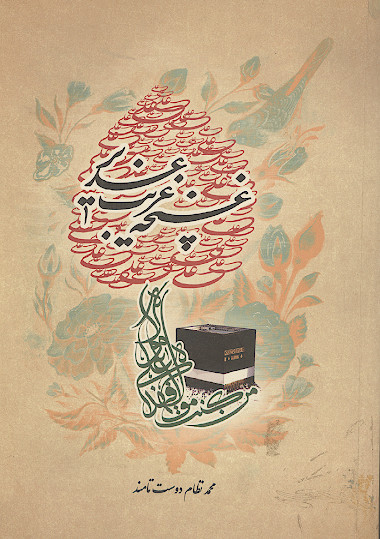 علی
غنچه غریب غدیر
۱
من کنت مولاه فهذا علی مولاه
محمد نظام دوست تامند